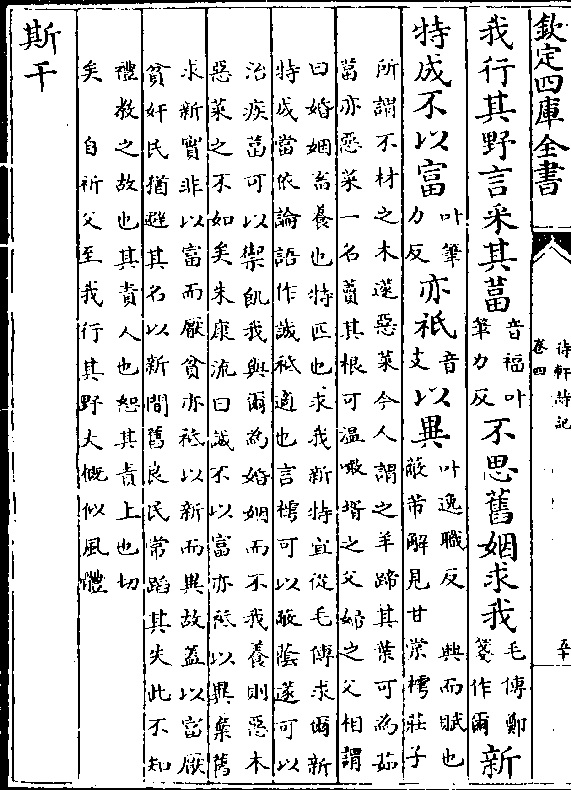 欽定四庫全書
待軒詩記
卷四
我行其野言采其葍音福叶筆力反不思舊姻求我毛傳鄭箋作爾新
特成不以富叶筆力反亦祇音支以異叶逸職反 興而賦也蔽芾解見甘棠樗莊子
所謂不材之木蓫惡菜今人謂之羊蹄其葉可為茹
葍亦惡菜一名藑其根可溫噉壻之父婦之父相謂
曰婚姻畜養也特匹也求我新特宜從毛傳求爾新
特成當依論語作誠祇適也言樗可以蔽蔭蓫可以
治疾葍可以禦飢我與爾為婚姻而不我養則惡木
惡菜之不如矣朱康流曰誠不以富亦祇以異棄舊
求新實非以富而厭貧亦祇以新而異故蓋以富厭
貧奸民猶避其名以新間舊良民常蹈其失此不知
禮教之故也其責人也恕其責上也切
矣 自祈父至我行其野大概似風體
斯干